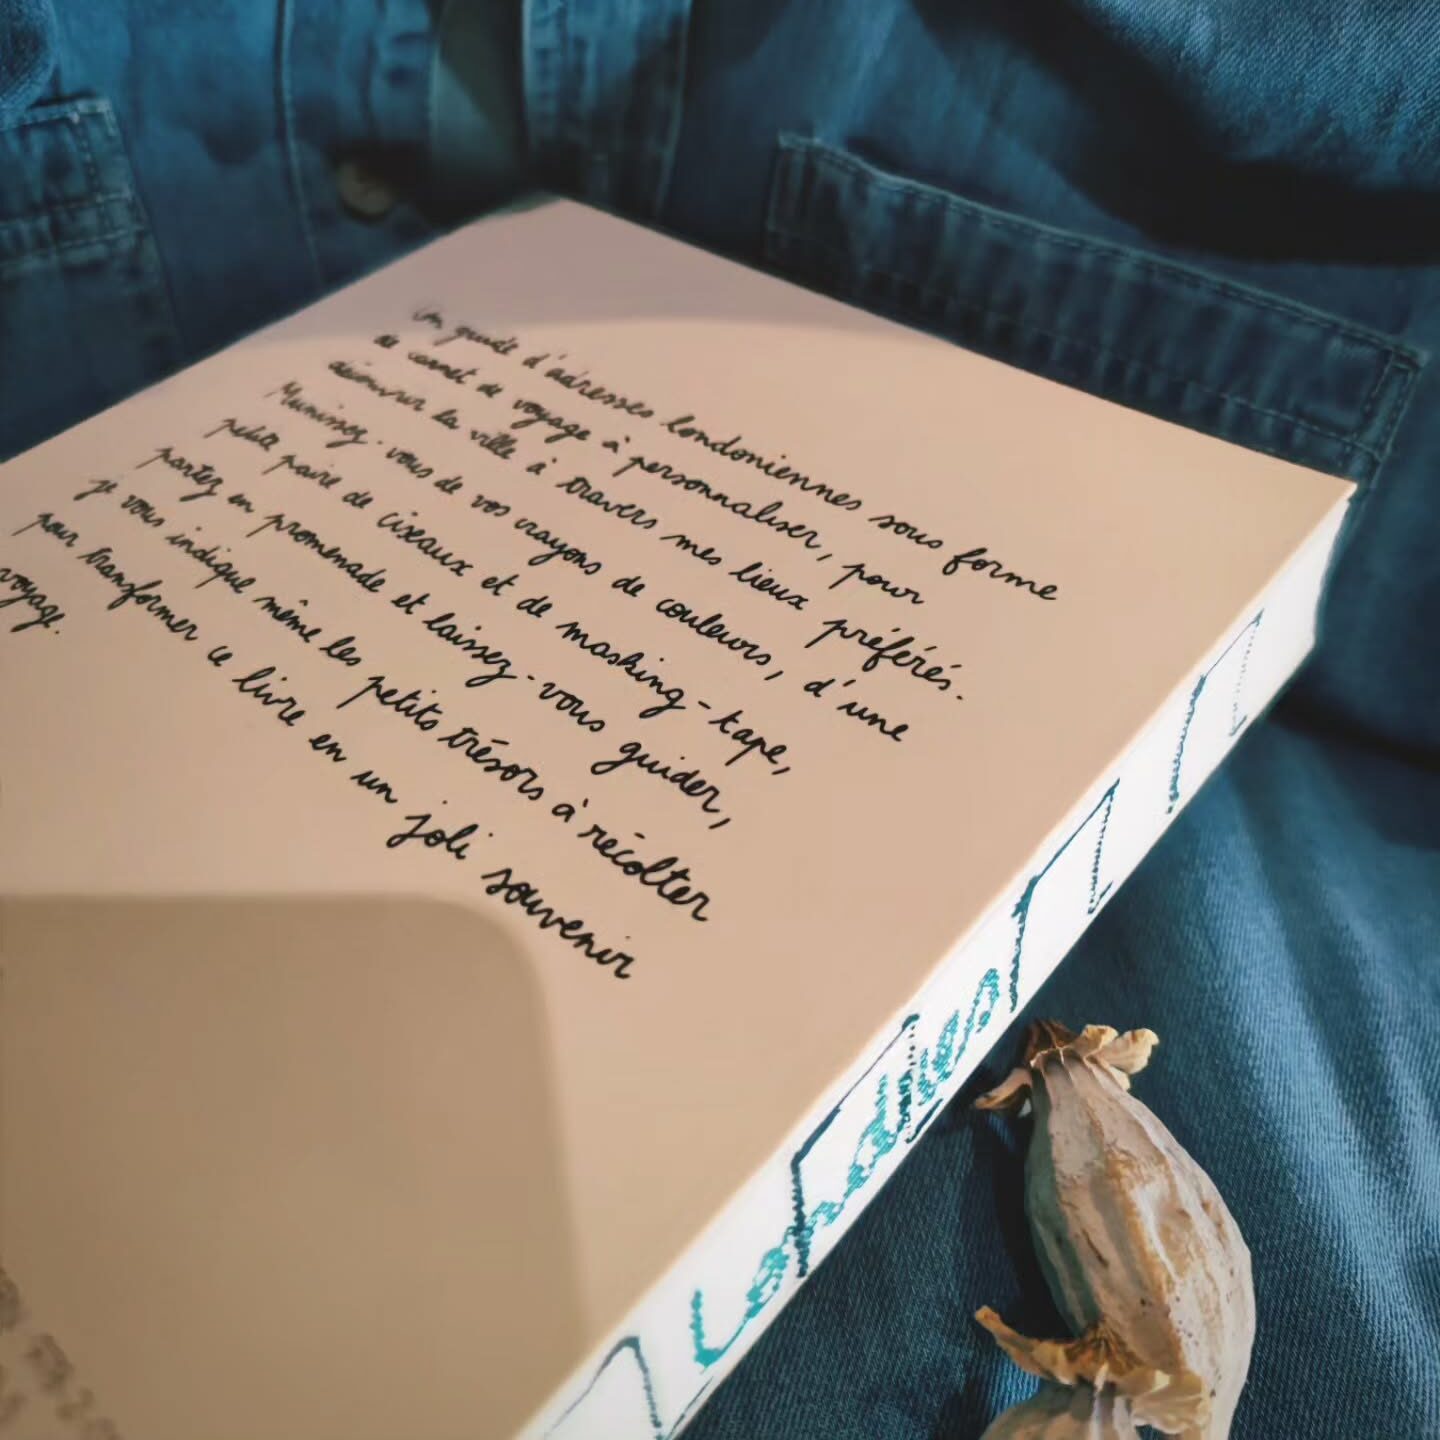 Un guide d'adresses londoniennes sous forme
de carnet de voyage à personnaliser, pour
découvrir la ville à travers mes lieux préférés.
Munissez-vous de vos crayons de couleurs, d'une
petite paire de ciseaux et de masking-tape,
partez en promenade et laissez-vous guider,
je vous indique même les petits trésors à récolter
pour transformer ce livre en un joli souvenir
voyage.